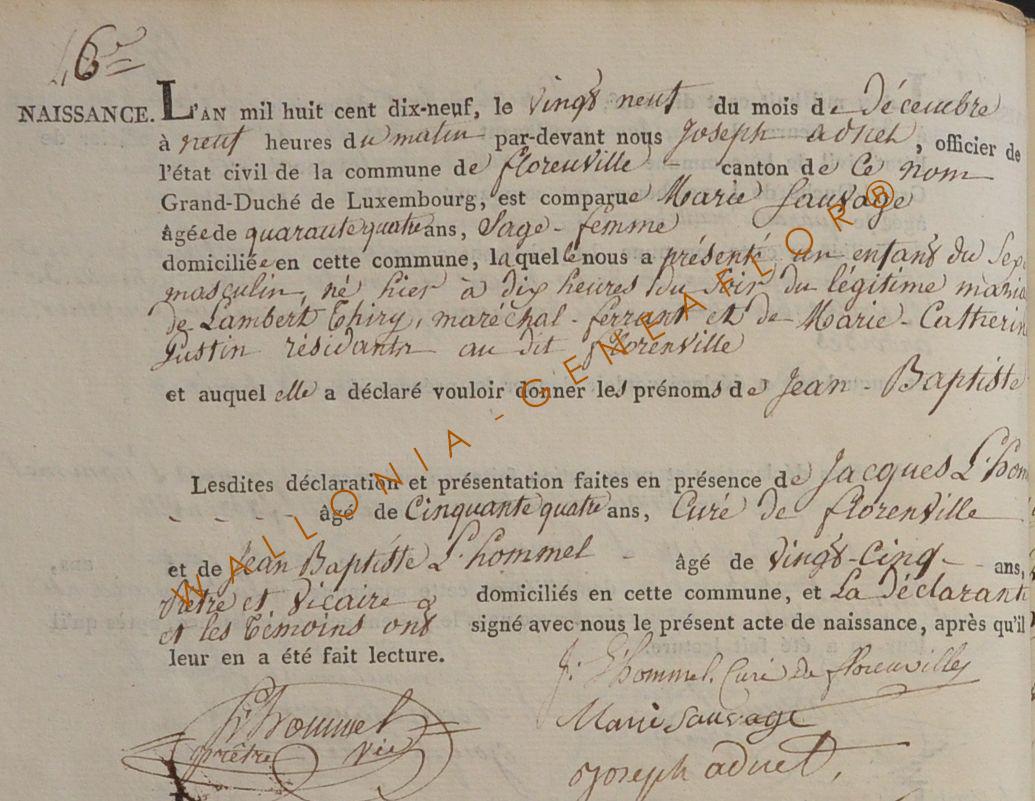 46e
NAISSANCE. L'AN mil huit cent dix-neuf, le vingt neuf du mois de Décembre
à neuf heures du matin par-devant nous Joseph adnet, officier de
l'état civil de la commune de florenville canton de Ce nom
Grand-Duché de Luxembourg, est comparue Marie Sauvage
âgée de quarante quatre ans, Sage-femme
domiciliée en cette commune, laquelle nous a présenté un enfant du Sexe
masculin, né hier à dix heures du Soir du légitime maria
de Lambert Thiry, maréchal-ferrant et de Marie-Catherine
Justin résidants au dit florenville
et auquel elle a déclaré vouloir donner les prénoms de Jean-Baptiste
Lesdites déclaration et présentation faites en présence de Jacques L'hom
- - - - âgé de Cinquante quatre ans, Curé de florenville
et de Jean Baptiste L'hommel âgé de vingt-Cinq - ans,
Prêtre et Vicaire domiciliés en cette commune, et La Déclarante
et les Témoins ont signé avec nous le présent acte de naissance, après qu'il
leur en a été fait lecture.
J. L'hommel. Curé de florenville
L'hommel
prêtre vic
Marie Sauvage
Joseph adnet,
WALLONIA-GENEAFLOR®